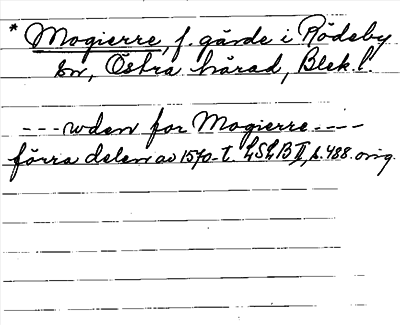 * Mogierre, f. gärde i Rödeby
sn, Östra härad, Blek l.
--- uden for Mogierre ----
förra delen av 1570-t. LSLB II, s. 488. orig.